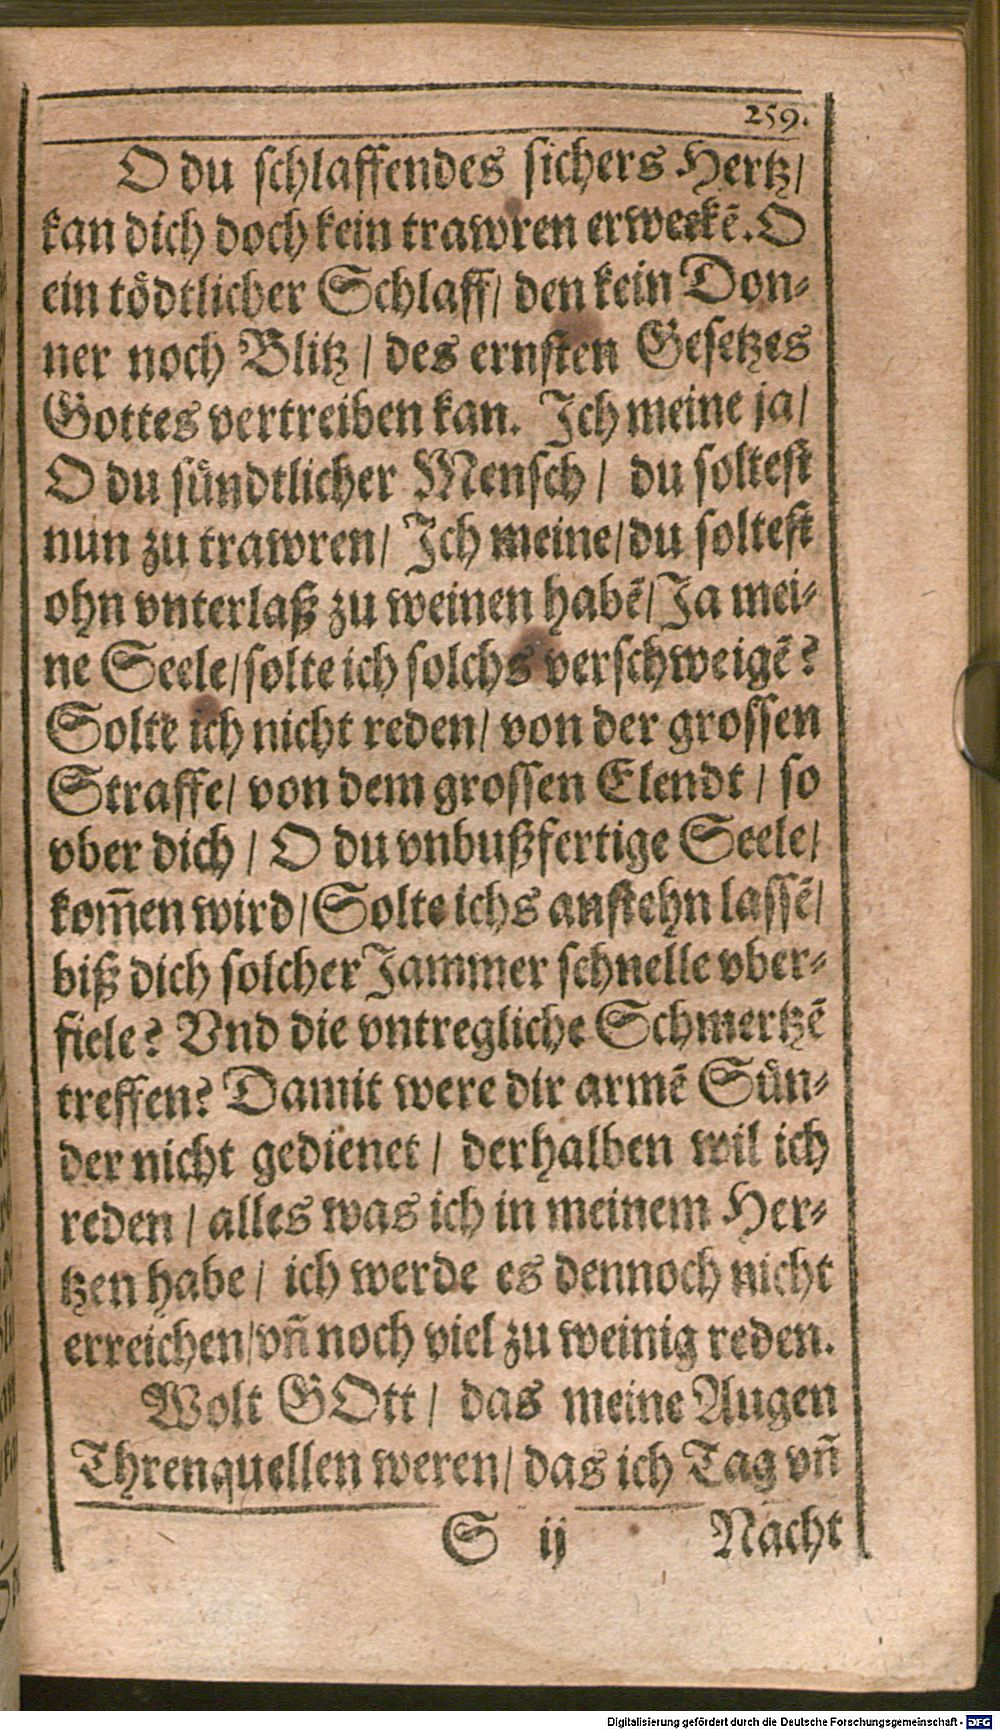 259.
O du schlaffendes sichers Hertz/
kan dich doch kein trawren erweckẽ. O
ein tödtlicher Schlaff/ den kein Don-
ner noch Blitz / des ernsten Gesetzes
Gottes vertreiben kan. Ich meine ja/
O du sündtlicher Mensch / du soltest
nun zu trawren/ Ich meine/du soltest
ohn vnterlaß zu weinen habẽ/Ja mei-
ne Seele/solte ich solchs verschweigẽ?
Solte ich nicht reden/ von der grossen
Straffe/ von dem grossen Elendt / so
vber dich / O du vnbußfertige Seele/
kom̃en wird/Solte ichs anstehn lassẽ/
biß dich solcher Jammer schnelle vber-
fiele? Vnd die vntregliche Schmertzẽ
treffen? Damit were dir armẽ Sün-
der nicht gedienet / derhalben wil ich
reden / alles was ich in meinem Her-
tzen habe / ich werde es dennoch nicht
erreichen/vñ noch viel zu weinig reden.
Wolt GOtt / das meine Augen
Threnquellen weren/ das ich Tag vñ
S ij Nacht
Digitalisierung gefördert durch die Deutsche Forschungsgemeinschaft - DFG